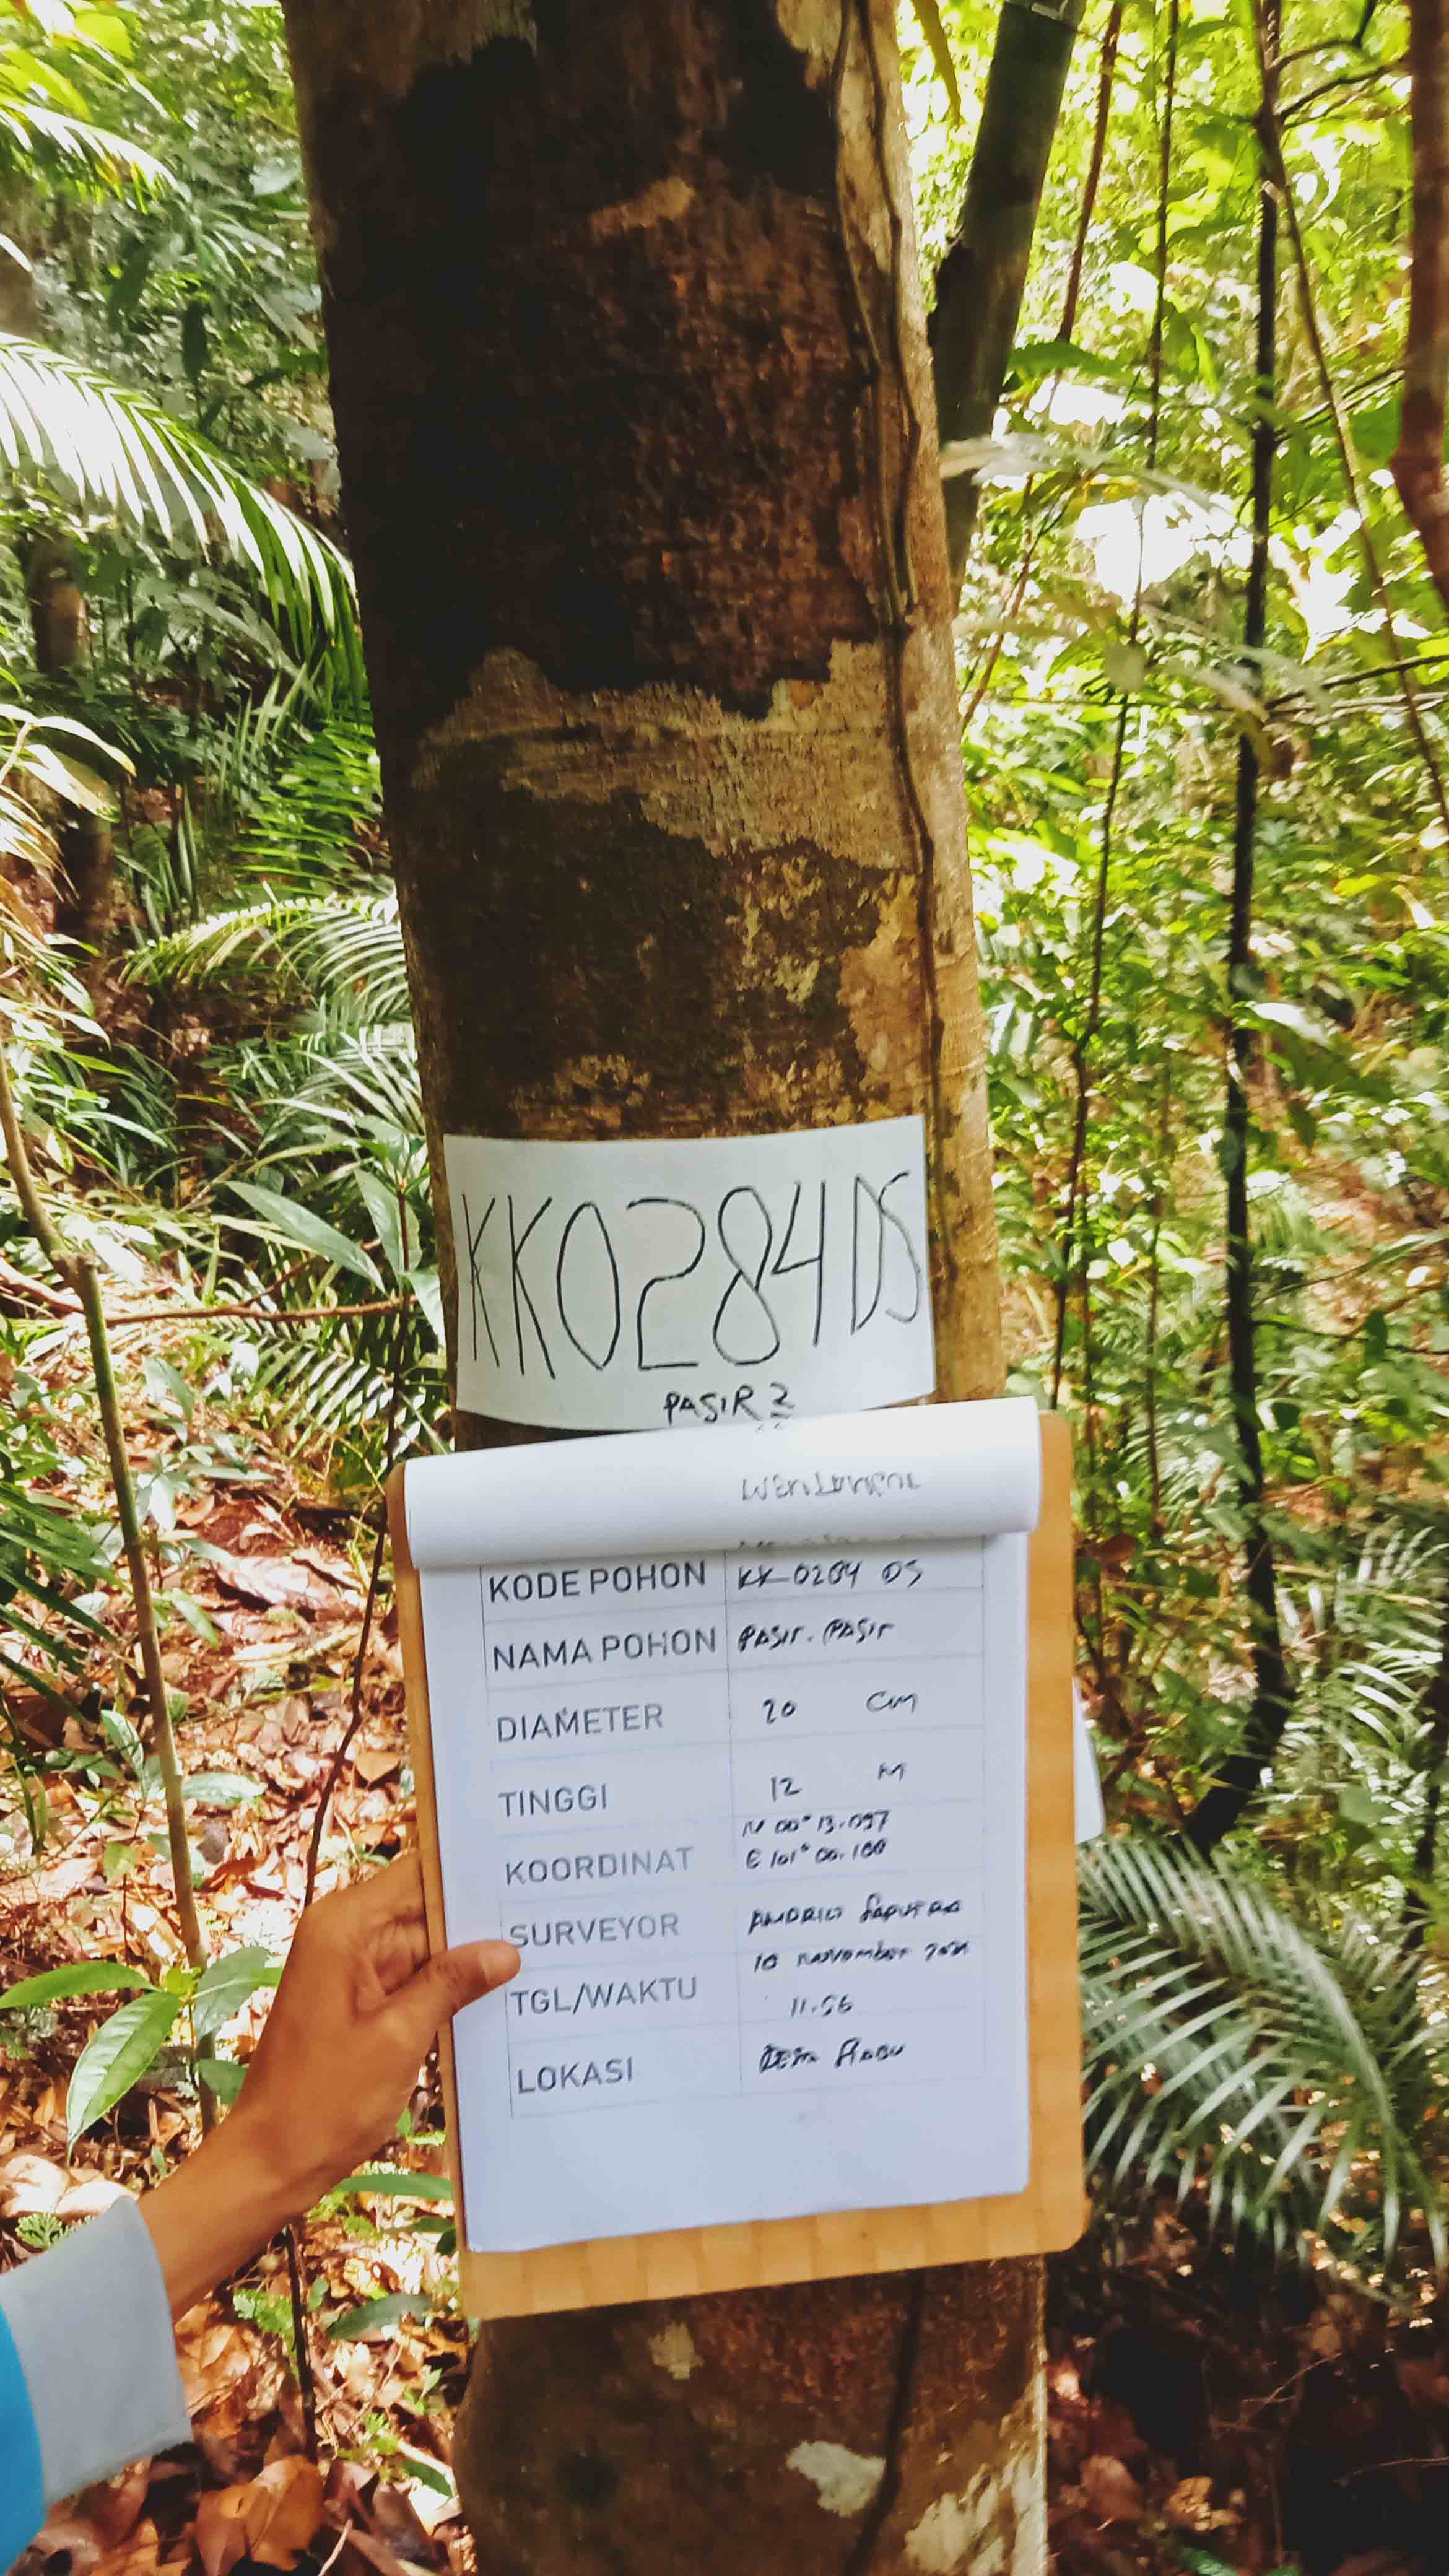 KK0284DS
PASIR 2
KODE POHON KK-0284 DS
NAMA POHON PASIr. PASIr
DIAMETER 20 Cm
TINGGI 12 M
KOORDINAT N 00° 13.097
E 101° 00.100
SURVEYOR SAPUTRA
TGL/WAKTU 10 november
11.56
LOKASI DESA